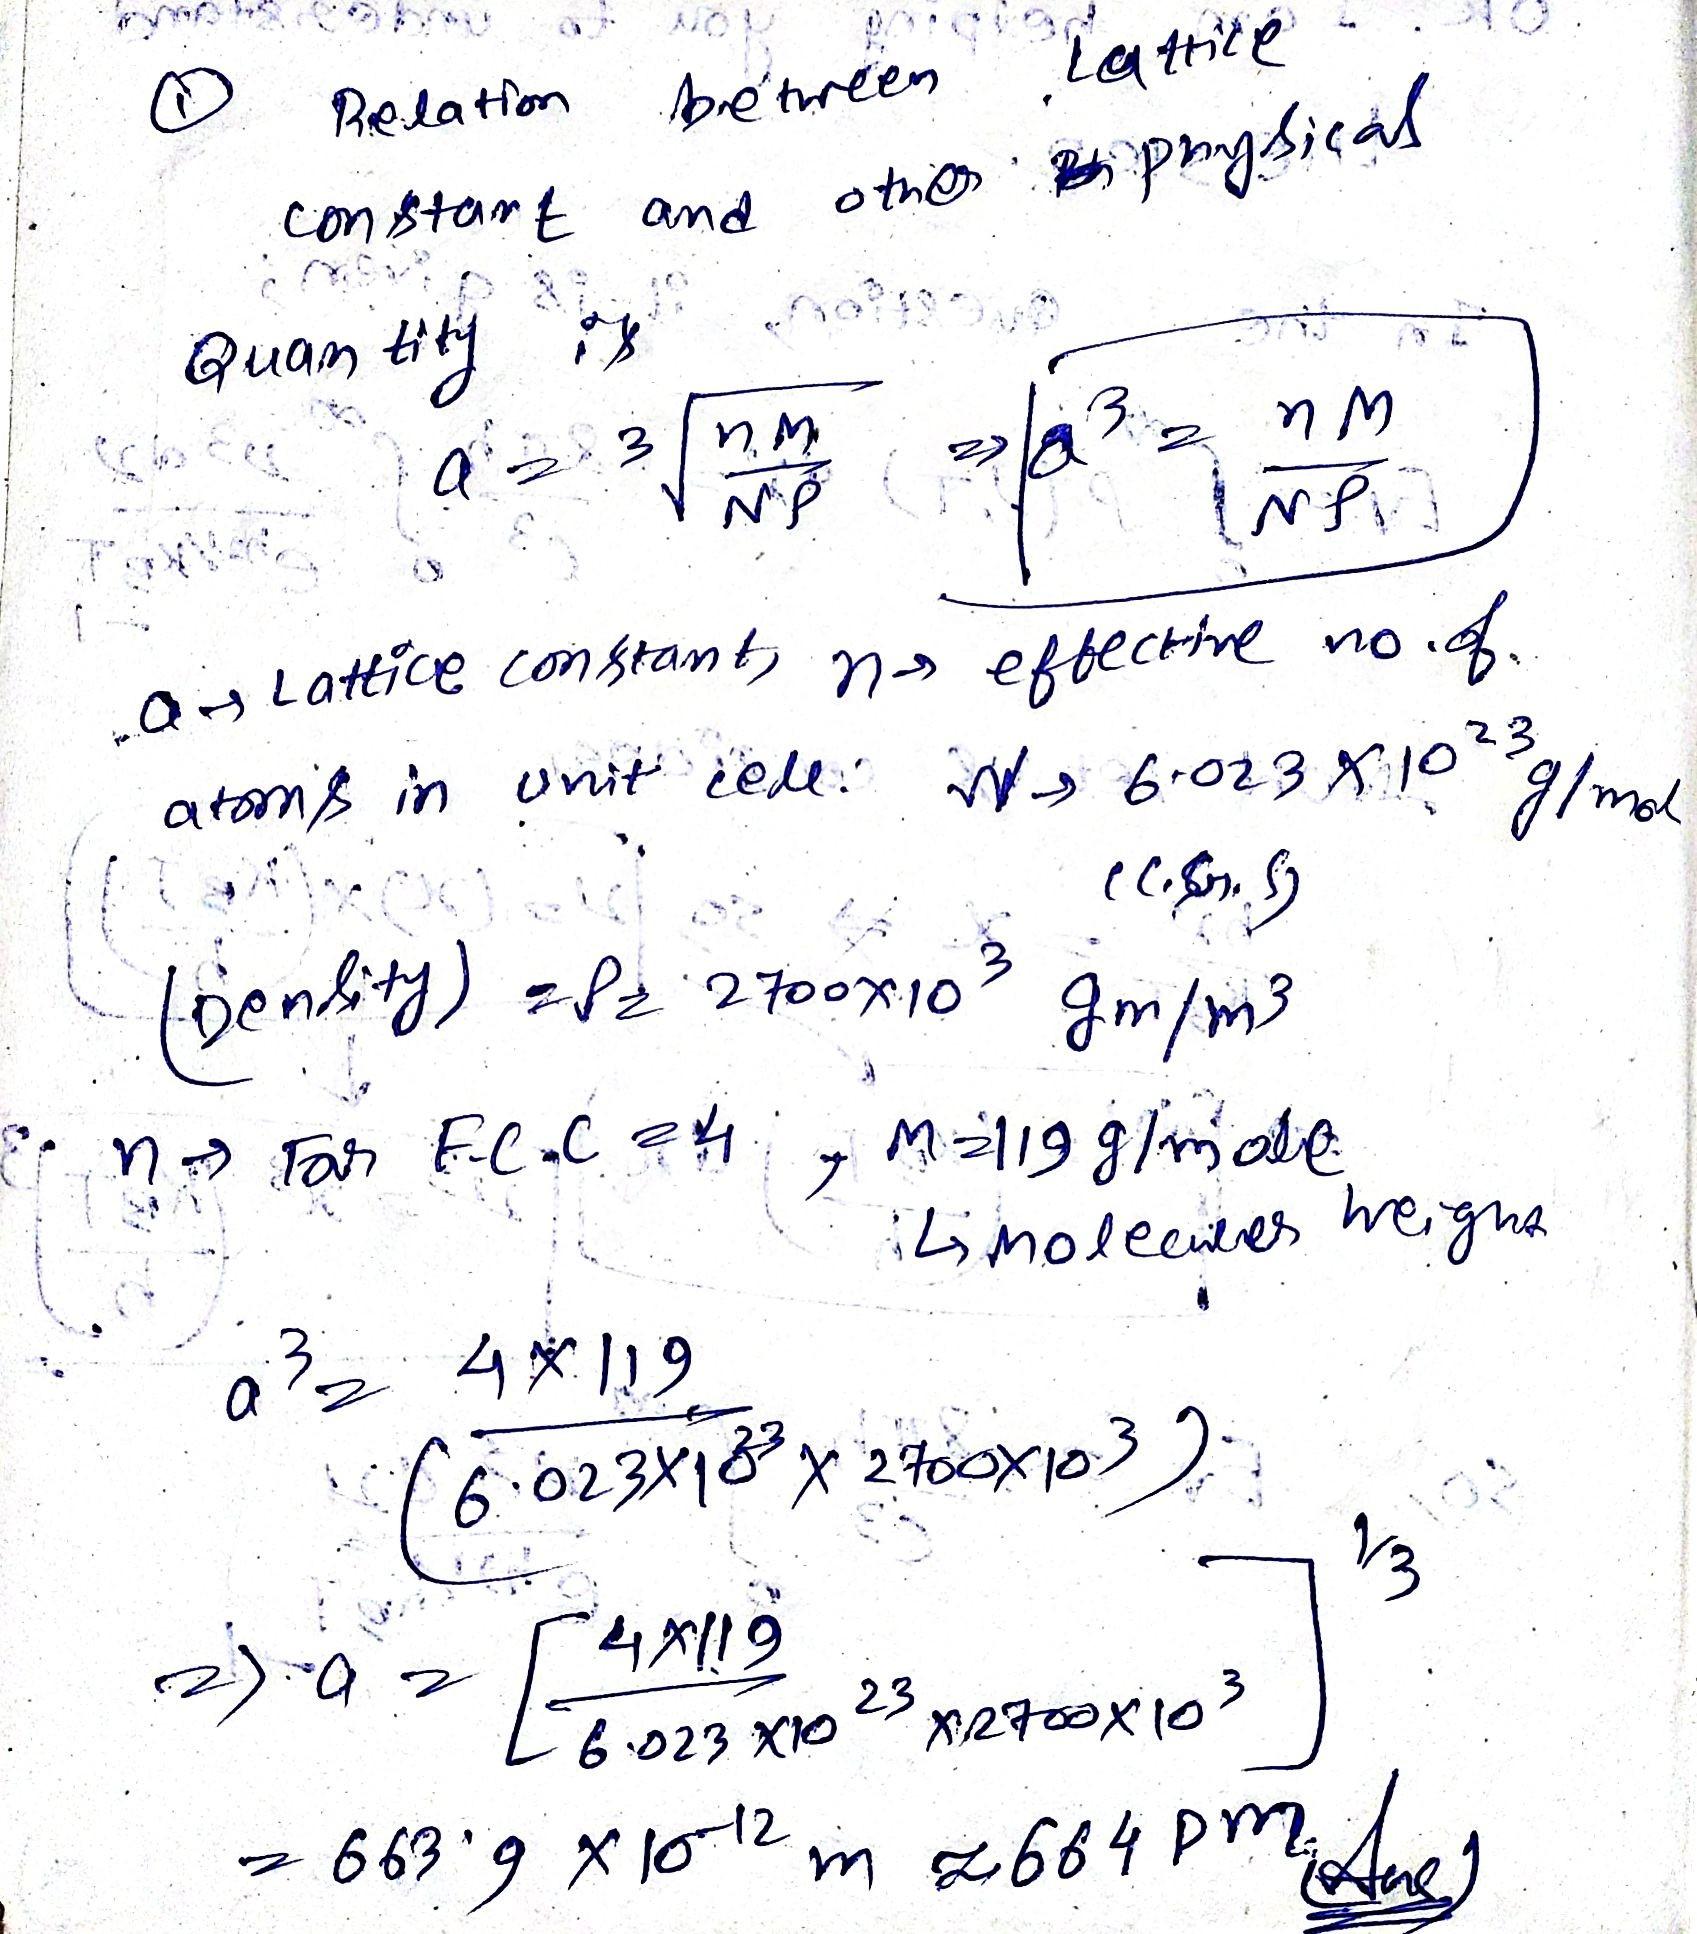 ① Relation between Lattice
constant and other physical
Quantity is
a = ∛(nM/Nρ) => a³ = nM/Nρ
a → Lattice constant, n → effective no. of
atoms in unit cell. N → 6.023 × 10²³ g/mol
(C.G.S)
(Density) = ρ = 2700×10³ gm/m³
n → For F.C.C = 4, M = 119 g/mole
↳ Molecular weight
a³ = 4×119 / (6.023×10²³ × 2700×10³)
=> a = [4×119 / 6.023×10²³ × 2700×10³]^1/3
= 663.9 × 10⁻¹² m ≈ 664 pm (Ans)